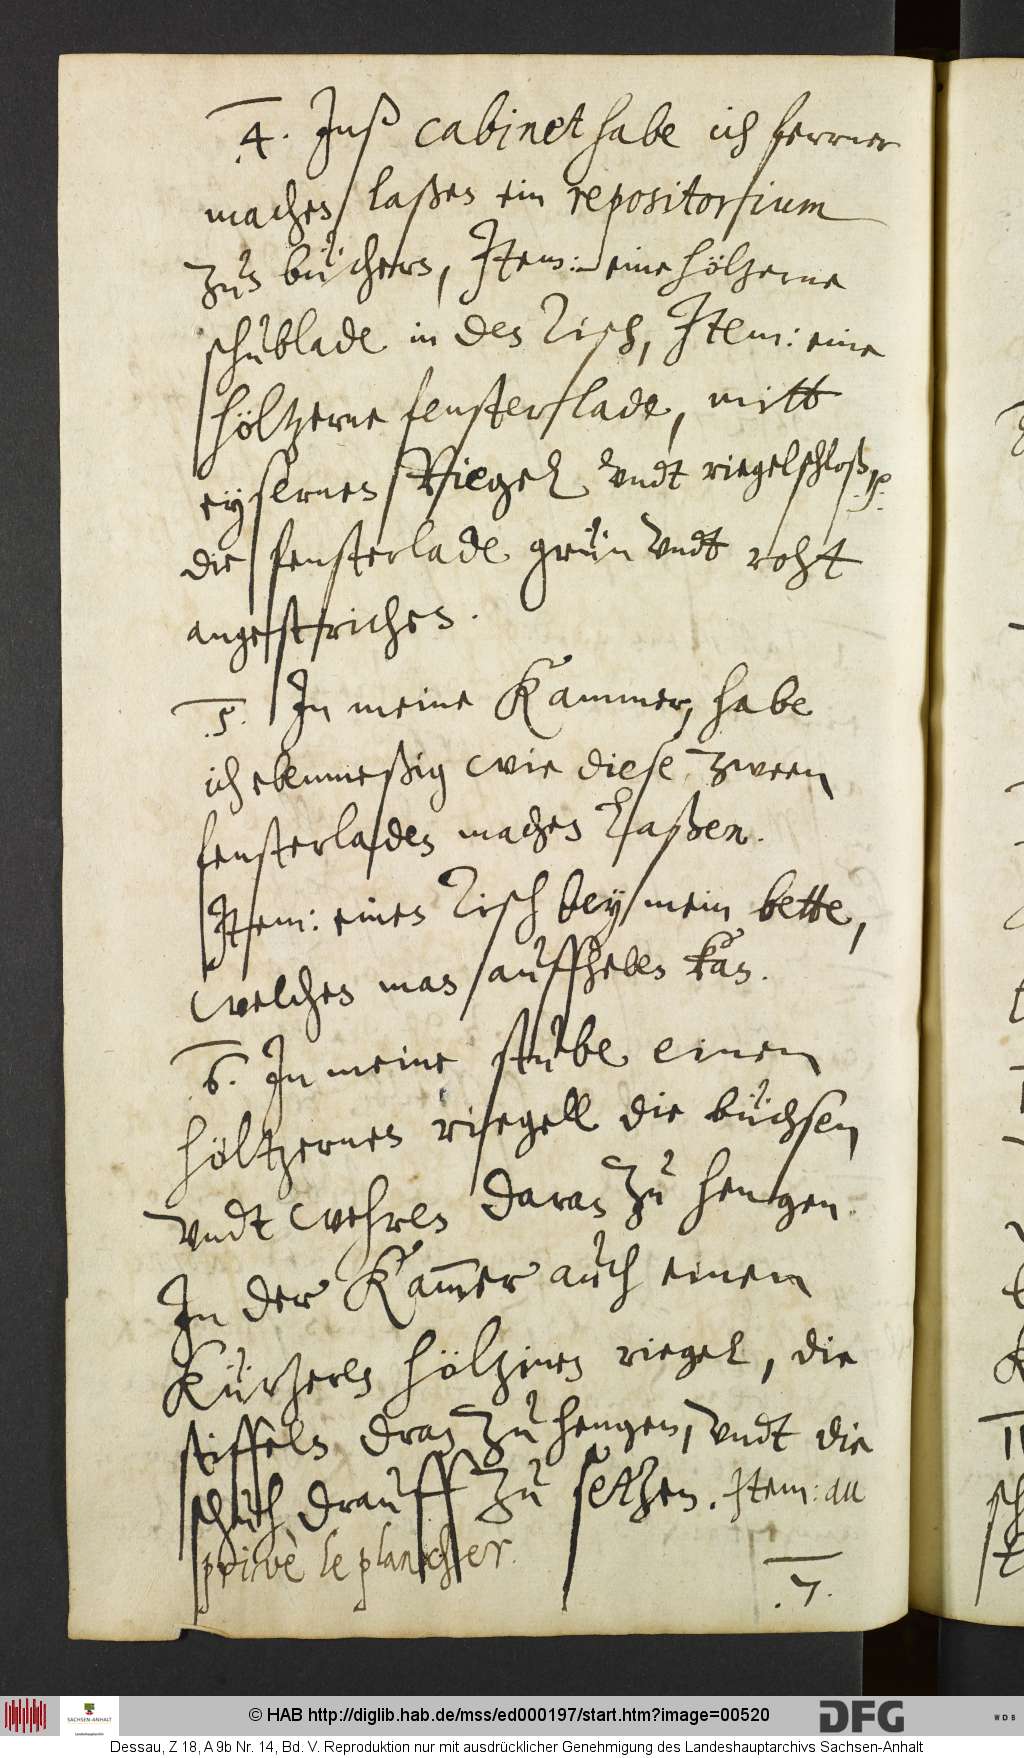 4. Inß cabinet habe ich ferrner
machen laßen ein repositorium
zun büchern, Item: eine höltzerne
schublade in den Tisch, Item: eine
höltzerne fensterlade, mitt
eysernen Riegel undt riegelschloß,
die fensterlade grün undt roht
angestrichen.
5. In meine Kammer, habe
ich ebenmeßig wie diese, zween
fensterladen machen laßen.
Item: einen Tisch bey mein bette,
welchen man auffheben kan.
6. In meine stube einen
höltzernen riegell die büchsen
undt wehren daran zu hengen.
In der Kam̄er auch einen
Kürtzern höltzinen riegel, die
stiffeln dran zu hengen, undt die
schuch drauff zu setzen. Item: au
privè le plancher.
7.
© HAB http://diglib.hab.de/mss/ed000197/start.htm?image=00520
SACHSEN-ANHALT
DFG
WDB
Dessau, Z 18, A 9b Nr. 14, Bd. V. Reproduktion nur mit ausdrücklicher Genehmigung des Landeshauptarchivs Sachsen-Anhalt